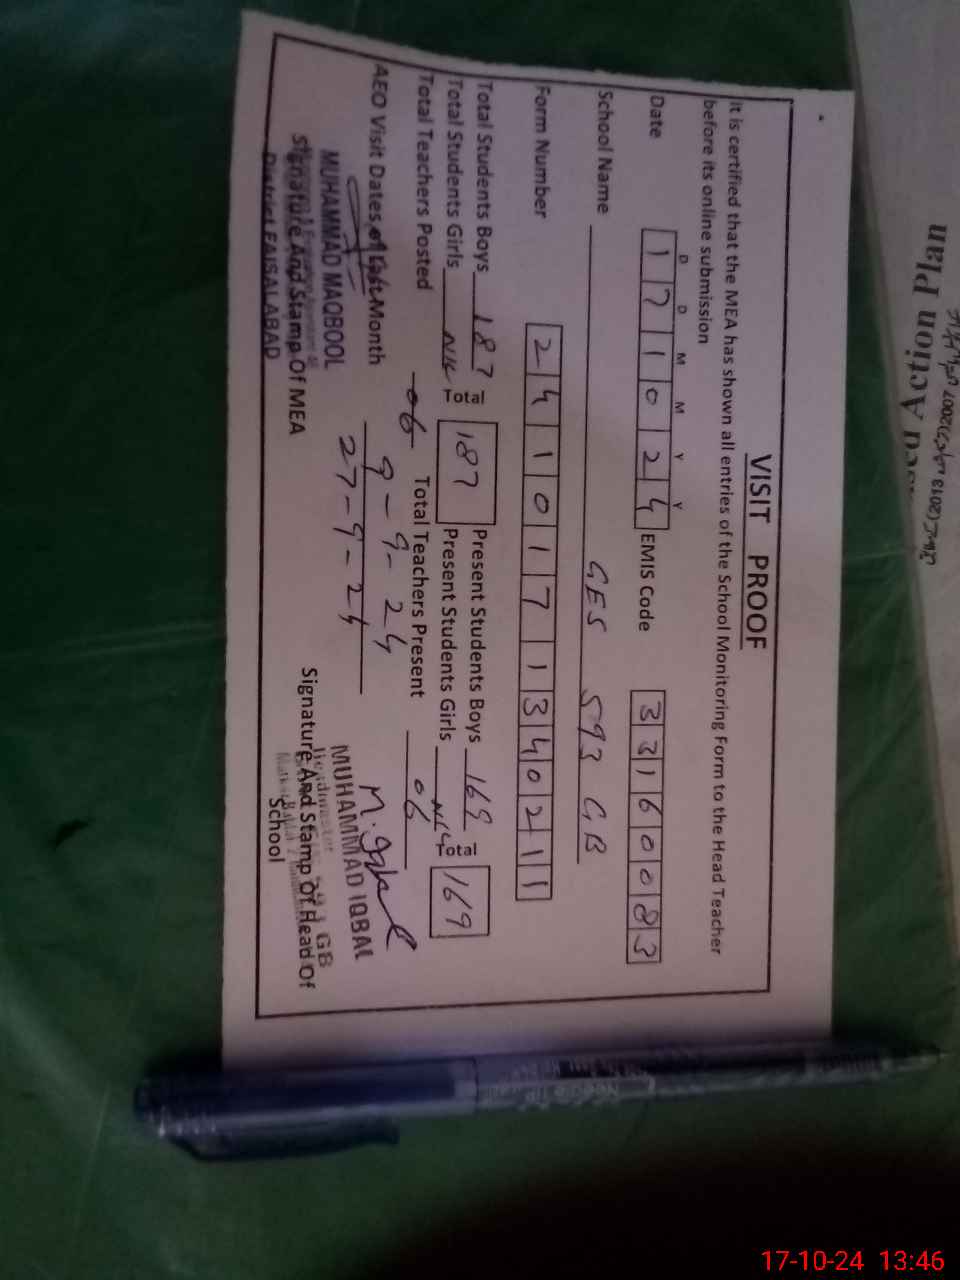 VISIT PROOF
It is certified that the MEA has shown all entries of the School Monitoring Form to the Head Teacher
before its online submission
D D M M Y Y
Date 1 7 1 0 2 4 EMIS Code 3 3 1 6 0 0 8 3
School Name GES 593 GB
Form Number 2 4 1 0 1 7 1 3 4 0 2 1 1
Total Students Boys 187 Total 187 Present Students Boys 169 Total 169
Total Students Girls Nil Present Students Girls Nil
Total Teachers Posted 06 Total Teachers Present 06
AEO Visit Dates of Last Month 9-9-24
27-9-24
MUHAMMAD MAQBOOL
Signature And Stamp Of MEA
District FAISALABAD
M. Iqbal
MUHAMMAD IQBAL
Headmaster
593 GB
Signature And Stamp Of Head Of
School
Action Plan
17-10-24 13:46